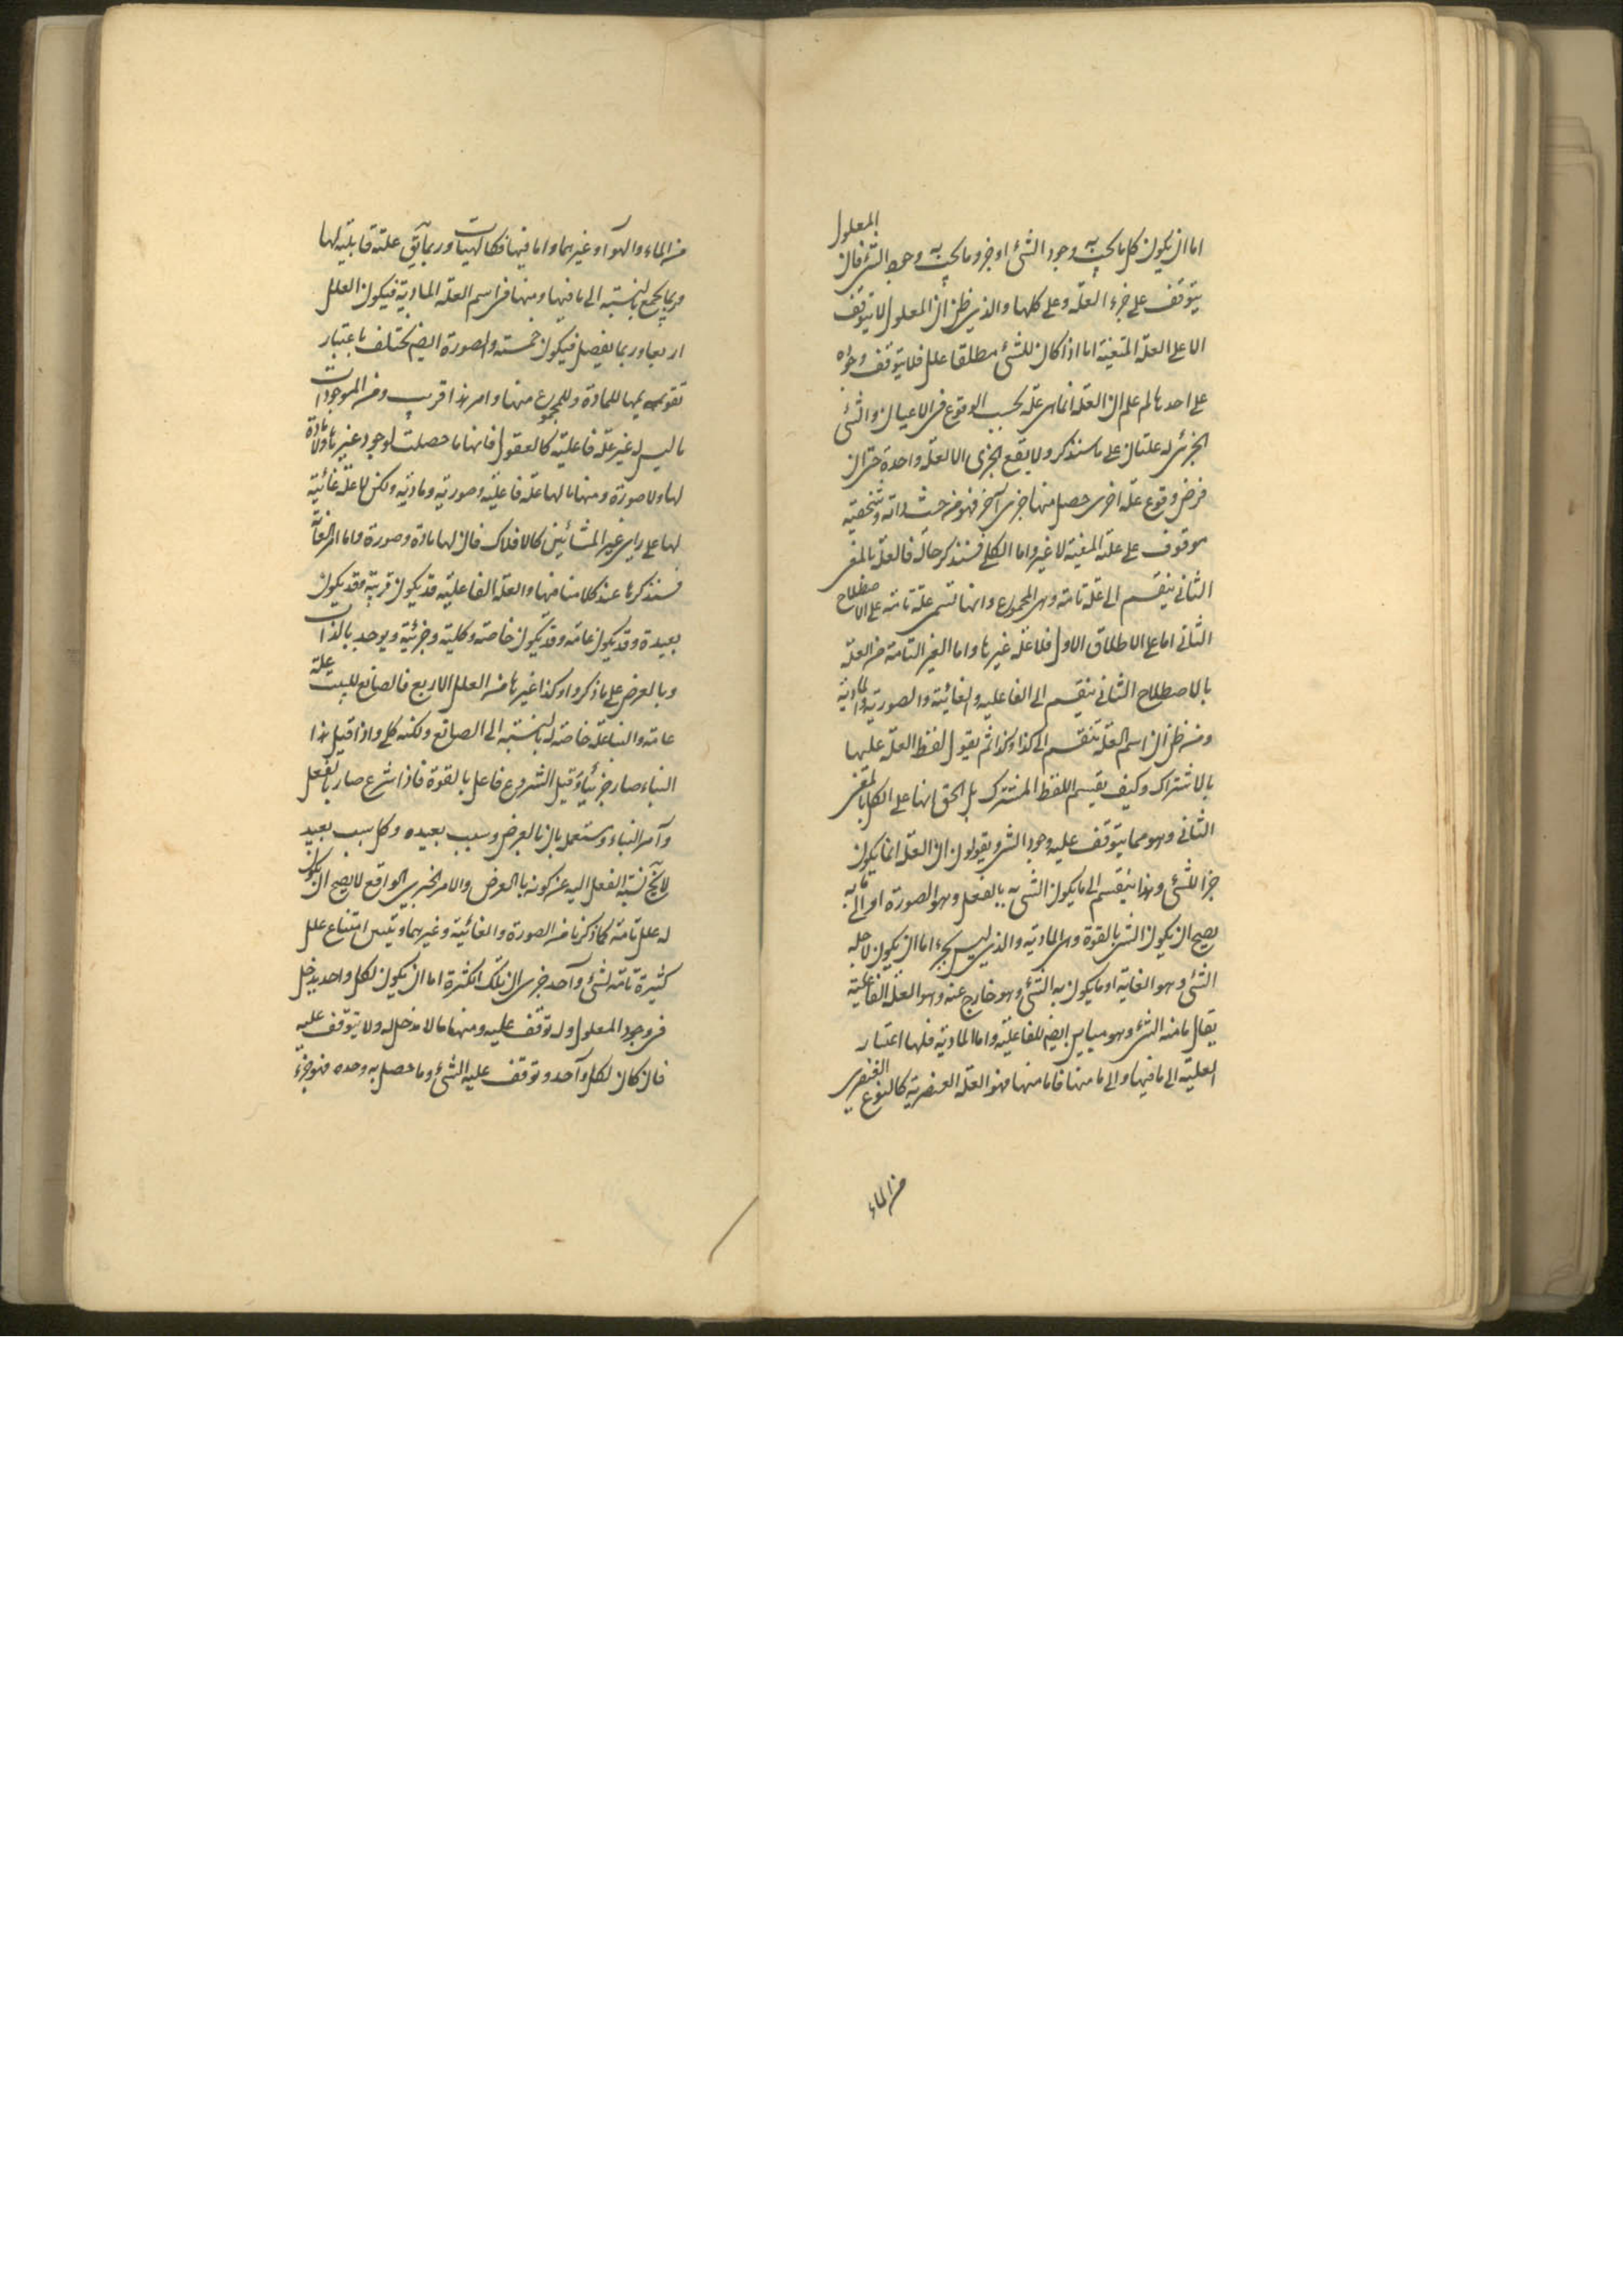 اما ان يكون كل ما يجب به وجود الشئ او جزو ما يجب به وجود الشئ فان المعلول
يتوقف على جزء العلة وعلى كلها والذى ظن ان المعلول لا يتوقف
الا على العلة المتعينة اما اذا كان للشئ مطلقا علل فلا يتوقف وجوده
على احدها لم يعلم ان العلة انما هى علة بحسب الوقوع فى الاعيان والشئ
الجزئى له علتان على ما سنذكر ولا يقع الجزى الا لعلة واحدة حتى ان
فرض وقوع علة اخرى حصل منها جزى آخر فهو من حيث ذاته وتشخصه
موقوف على علته المعينة لا غير واما الكلى فسنذكر حاله فالعلة بالمعنى
الثانى ينقسم الى علة تامة وهى المجموع وانها تسمى علة تامة على الاصطلاح
الثانى اما على الاطلاق الاول فلا علة غيرها واما الغير التامة من العلة
بالاصطلاح الثانى ينقسم الى الفاعلية والغائية والصورية والمادية
ومن ظن ان اسم العلة ينقسم الى كذا وكذا ثم يقول لفظ العلة عليها
بالاشتراك وكيف يقسم اللفظ المشترك بل الحق انها على الكل بالمعنى
الثانى وهو مما يتوقف عليه وجود الشئ ويقولون ان العلة اما يكون
جزأ للشئ وهذا ينقسم الى ما يكون الشئ به بالفعل وهو الصورة او الى ما به
يصح ان يكون الشئ بالقوة وهى المادية والذى ليس بجزء اما ان يكون لاجله
الشئ وهو الغاية او ما يكون به الشئ وهو خارج عنه وهو العلة الفاعلية
يقال ما منه الشئ وهو مباين ايضم للفاعلية واما المادية فلها اعتبار
العلية الى ما فيها والى ما منها فاما منها فهو العلة العنصرية كالنوع العنصرى
من الماء
من الماء والهوآ وغيرهما واما فيها فكالهيئات وربما بقى علته قابلية لها
وربما يجمع بالنسبة الى ما فيها ومنها فى اسم العلة المادية فيكون العلل
اربعا وربما يفصل فيكون خمسة والصورة ايضم يختلف باعتبار
تقويمها للمادة وللمجموع منها وامر هذا قريب ومن الموجودات
ما ليس له غير علة فاعلية كالعقول فانها ما حصلت لوجود غيرها ولا مادة
لها ولا صورة ومنها ما لها علة فاعلية وصورية ومادية ولكن لا علة غائية
لها على راى غير المشائين كالافلاك فان لها مادة وصورة واما امر الغاية
فسنذكرها عند كلامنا فيها والعلة الفاعلية قد يكون قريبة وقد يكون
بعيدة وقد يكون عامة وقد يكون خاصة وكلية وجزئية ويوجد بالذات
وبالعرض على ما ذكروا وكذا غيرها من العلل الاربع فالصانع للبيت علة
عامة والبنا علة خاصة له بالنسبة الى الصانع ولكنه كلى واذا قيل هذا
البناء صار جزئيا وقبل الشروع فاعل بالقوة فاذا شرع صار بالفعل
وآمر البناء ومستعمل بان بالعرض وسبب بعيده وكل سبب بعيد
لا يخ نسبة الفعل اليه عن كونه بالعرض والامر الخير يس الواقع لا يصح ان يكون
له علل تامة كما ذكرنا من الصورة والغائية وغيرهما ويتبين امتناع علل
كثيرة تامة لشئ وآحد جزى ان تلك الكثرة اما ان يكون لكل واحد يدخل
فى وجود المعلول وله توقف عليه ومنها ما لا مدخل له ولا يتوقف عليه
فان كان لكل وآحد وتوقف عليه الشئ وما حصل به وحده فهو جزء